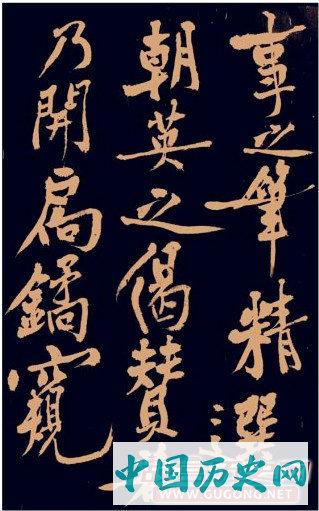 事之筆精選
朝英之偈贊
乃開扃鐍窺
中国历史网
WWW.GUGONG.NET